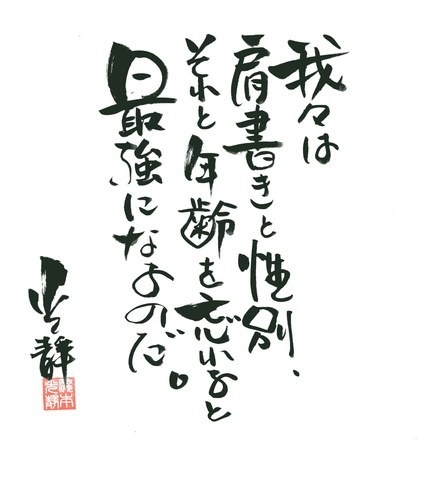 我々は
肩書きと性別、
それと年齢を忘れると
最強になるのだ。
光静
瀧本
光静